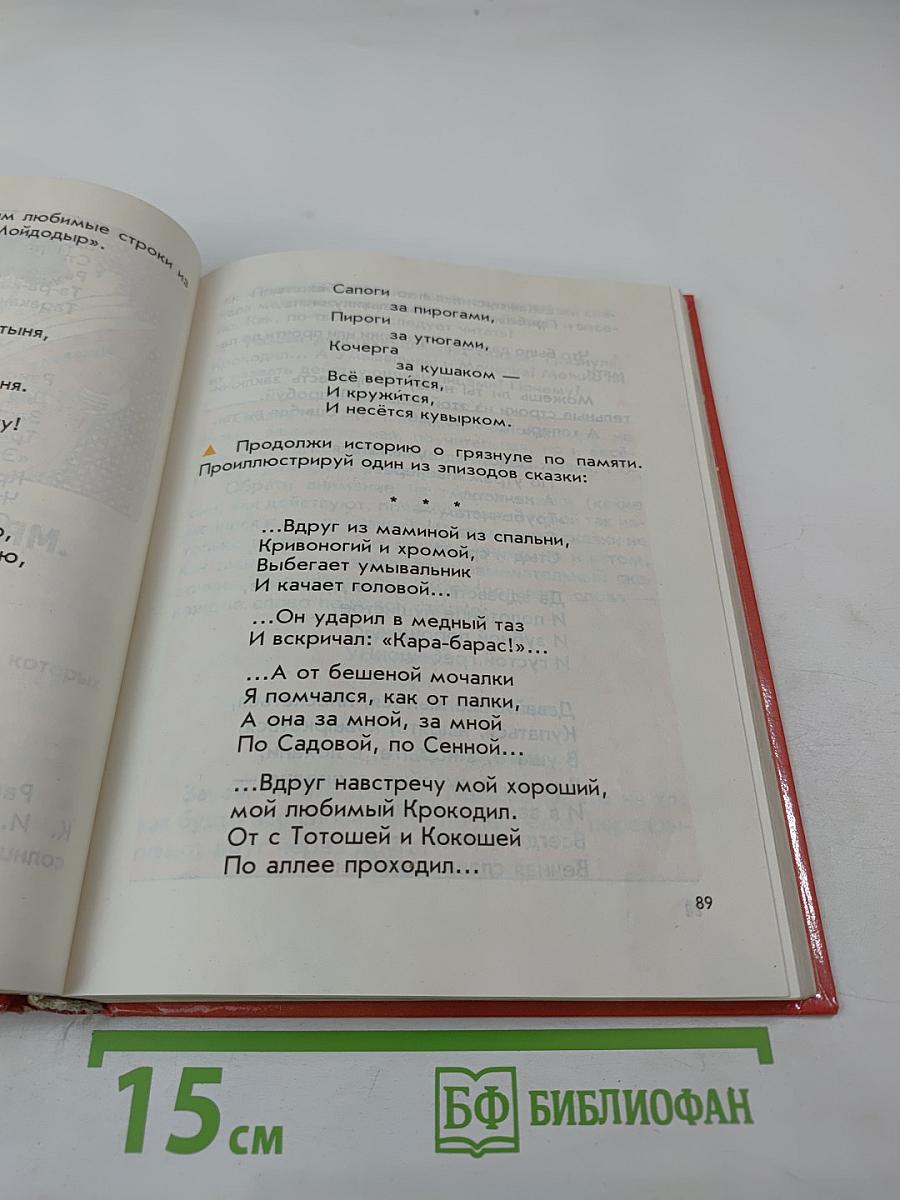 любимые строки из
Мойдодыр».
Сапоги
за пирогами,
Пироги
за утюгами,
Кочерга
за кушаком —
Всё верти́тся,
И кружи́тся,
И несётся кувырком.
Продолжи историю о грязнуле по памяти.
Проиллюстрируй один из эпизодов сказки:
* * *
...Вдруг из маминой из спальни,
Кривоногий и хромой,
Выбегает умывальник
И качает головой...
...Он ударил в медный таз
И вскричал: «Кара-барас!»...
...А от бешеной мочалки
Я помчался, как от палки,
А она за мной, за мной
По Садовой, по Сенной...
...Вдруг навстречу мой хороший,
мой любимый Крокодил.
От с Тотошей и Кокошей
По аллее проходил...
89
15 см
БФ БИБЛИОФАН